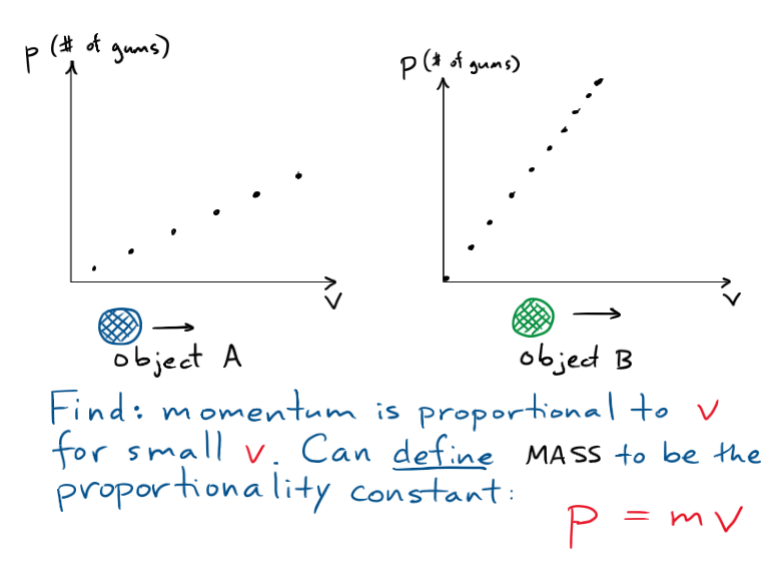 p (# of gums)
p (# of gums)
v
v
object A
object B
Find: momentum is proportional to v
for small v. Can define MASS to be the
proportionality constant:
p = mv